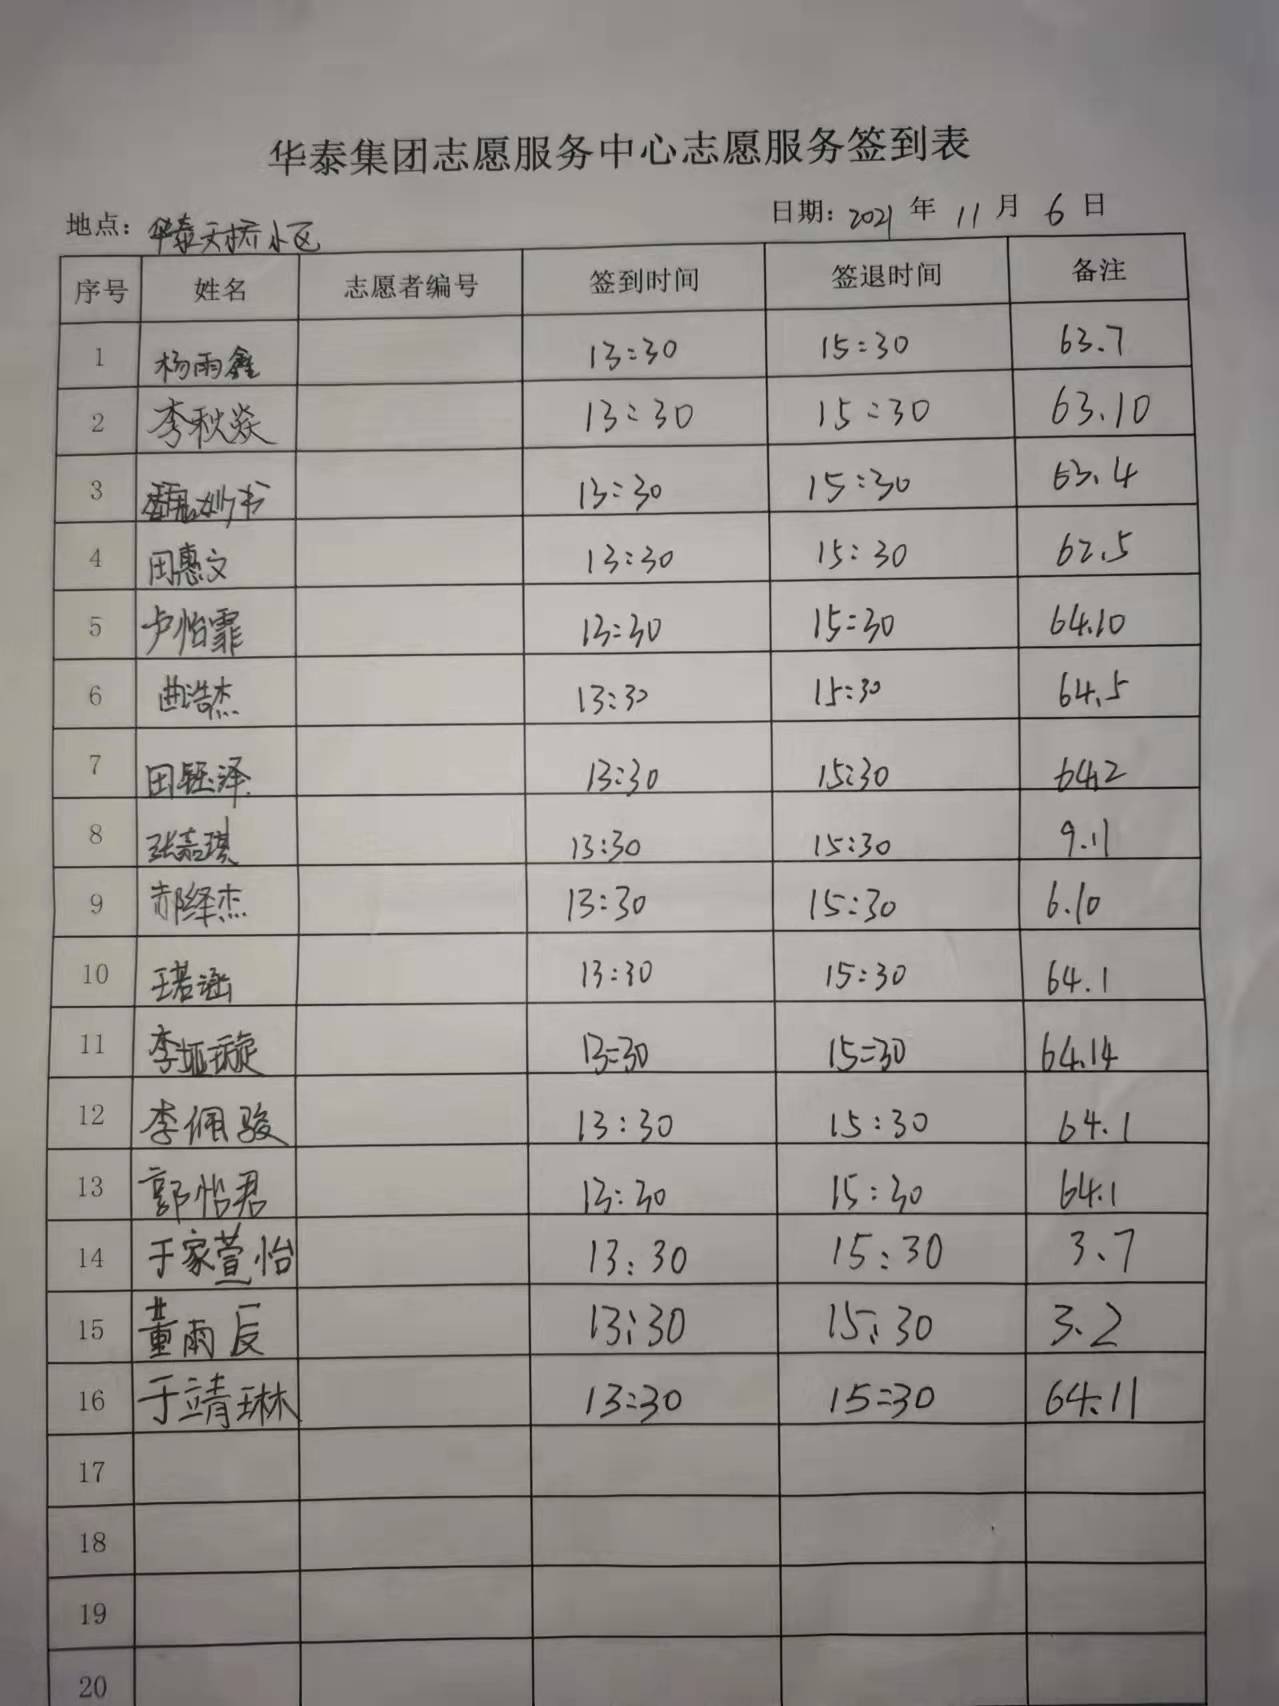 华泰集团志愿服务中心志愿服务签到表
地点：华泰天桥小区 日期：2021 年 11 月 6 日
序号 姓名 志愿者编号 签到时间 签退时间 备注
1 杨雨鑫 13:30 15:30 63.7
2 李秋焱 13:30 15:30 63.10
3 魏妙书 13:30 15:30 63.4
4 田惠文 13:30 15:30 62.5
5 卢怡霏 13:30 15:30 64.10
6 曲浩杰 13:30 15:30 64.5
7 田钰泽 13:30 15:30 64.2
8 张嘉琪 13:30 15:30 9.11
9 郝绎杰 13:30 15:30 6.10
10 王若涵 13:30 15:30 64.1
11 李娅璇 13:30 15:30 64.14
12 李佩骏 13:30 15:30 64.1
13 郭怡君 13:30 15:30 64.1
14 于家萱怡 13:30 15:30 3.7
15 董雨辰 13:30 15:30 3.2
16 于靖琳 13:30 15:30 64.11
17
18
19
20